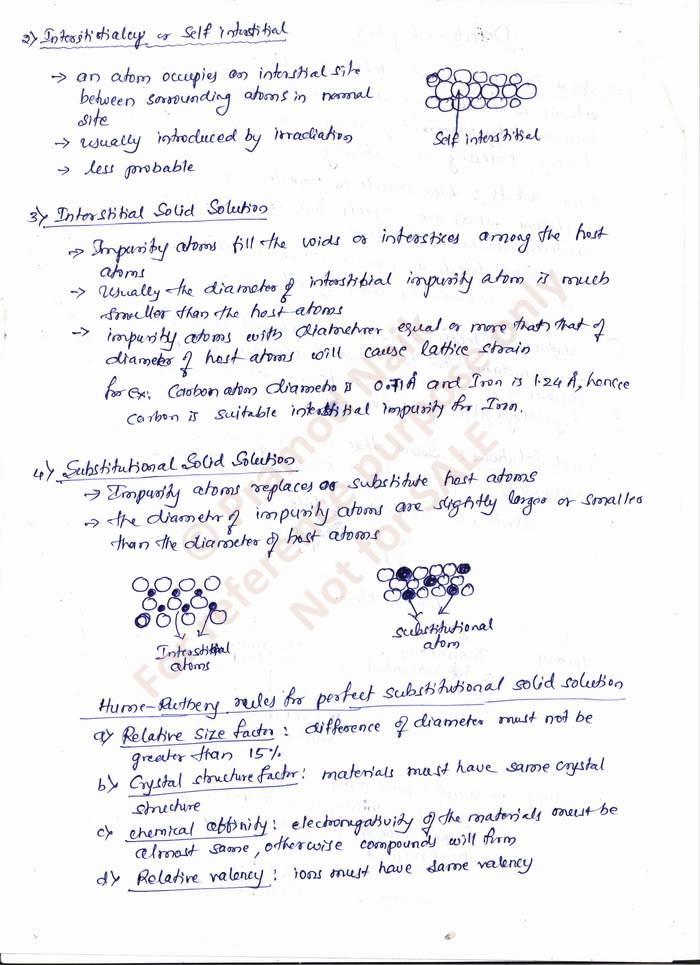 2) Interstitialcy or Self interstitial
→ an atom occupies an interstial site
between sorrounding atoms in normal
site
→ usually introduced by irradiation
→ less probable
Self interstitial
3) Interstitial Solid Solution
→ Impurity atoms fill the voids or interstices among the host
atoms
→ Usually the diameter of interstitial impurity atom is much
smaller than the host atoms
→ impurity atoms with diameter equal or more than that of
diameter of host atoms will cause lattice strain
for ex. Carbon atom diameter is 0.71 Å and Iron is 1.24 Å, hence
carbon is suitable interstitial impurity for Iron.
4) Substitutional Solid Solution
→ Impurity atoms replaces or substitute host atoms
→ the diameter of impurity atoms are slightly larger or smaller
than the diameter of host atoms
Interstitial
atoms
substitutional
atom
Hume-Ruthery rules for perfect substitutional solid solution
a) Relative Size factor : difference of diameter must not be
greater than 15%
b) Crystal structure factor : materials must have same crystal
structure
c) chemical affinity : electronegativity of the materials must be
almost same, otherwise compounds will form
d) Relative valency : ions must have same valency
© Pramod Naik
For reference purpose only
Not for SALE